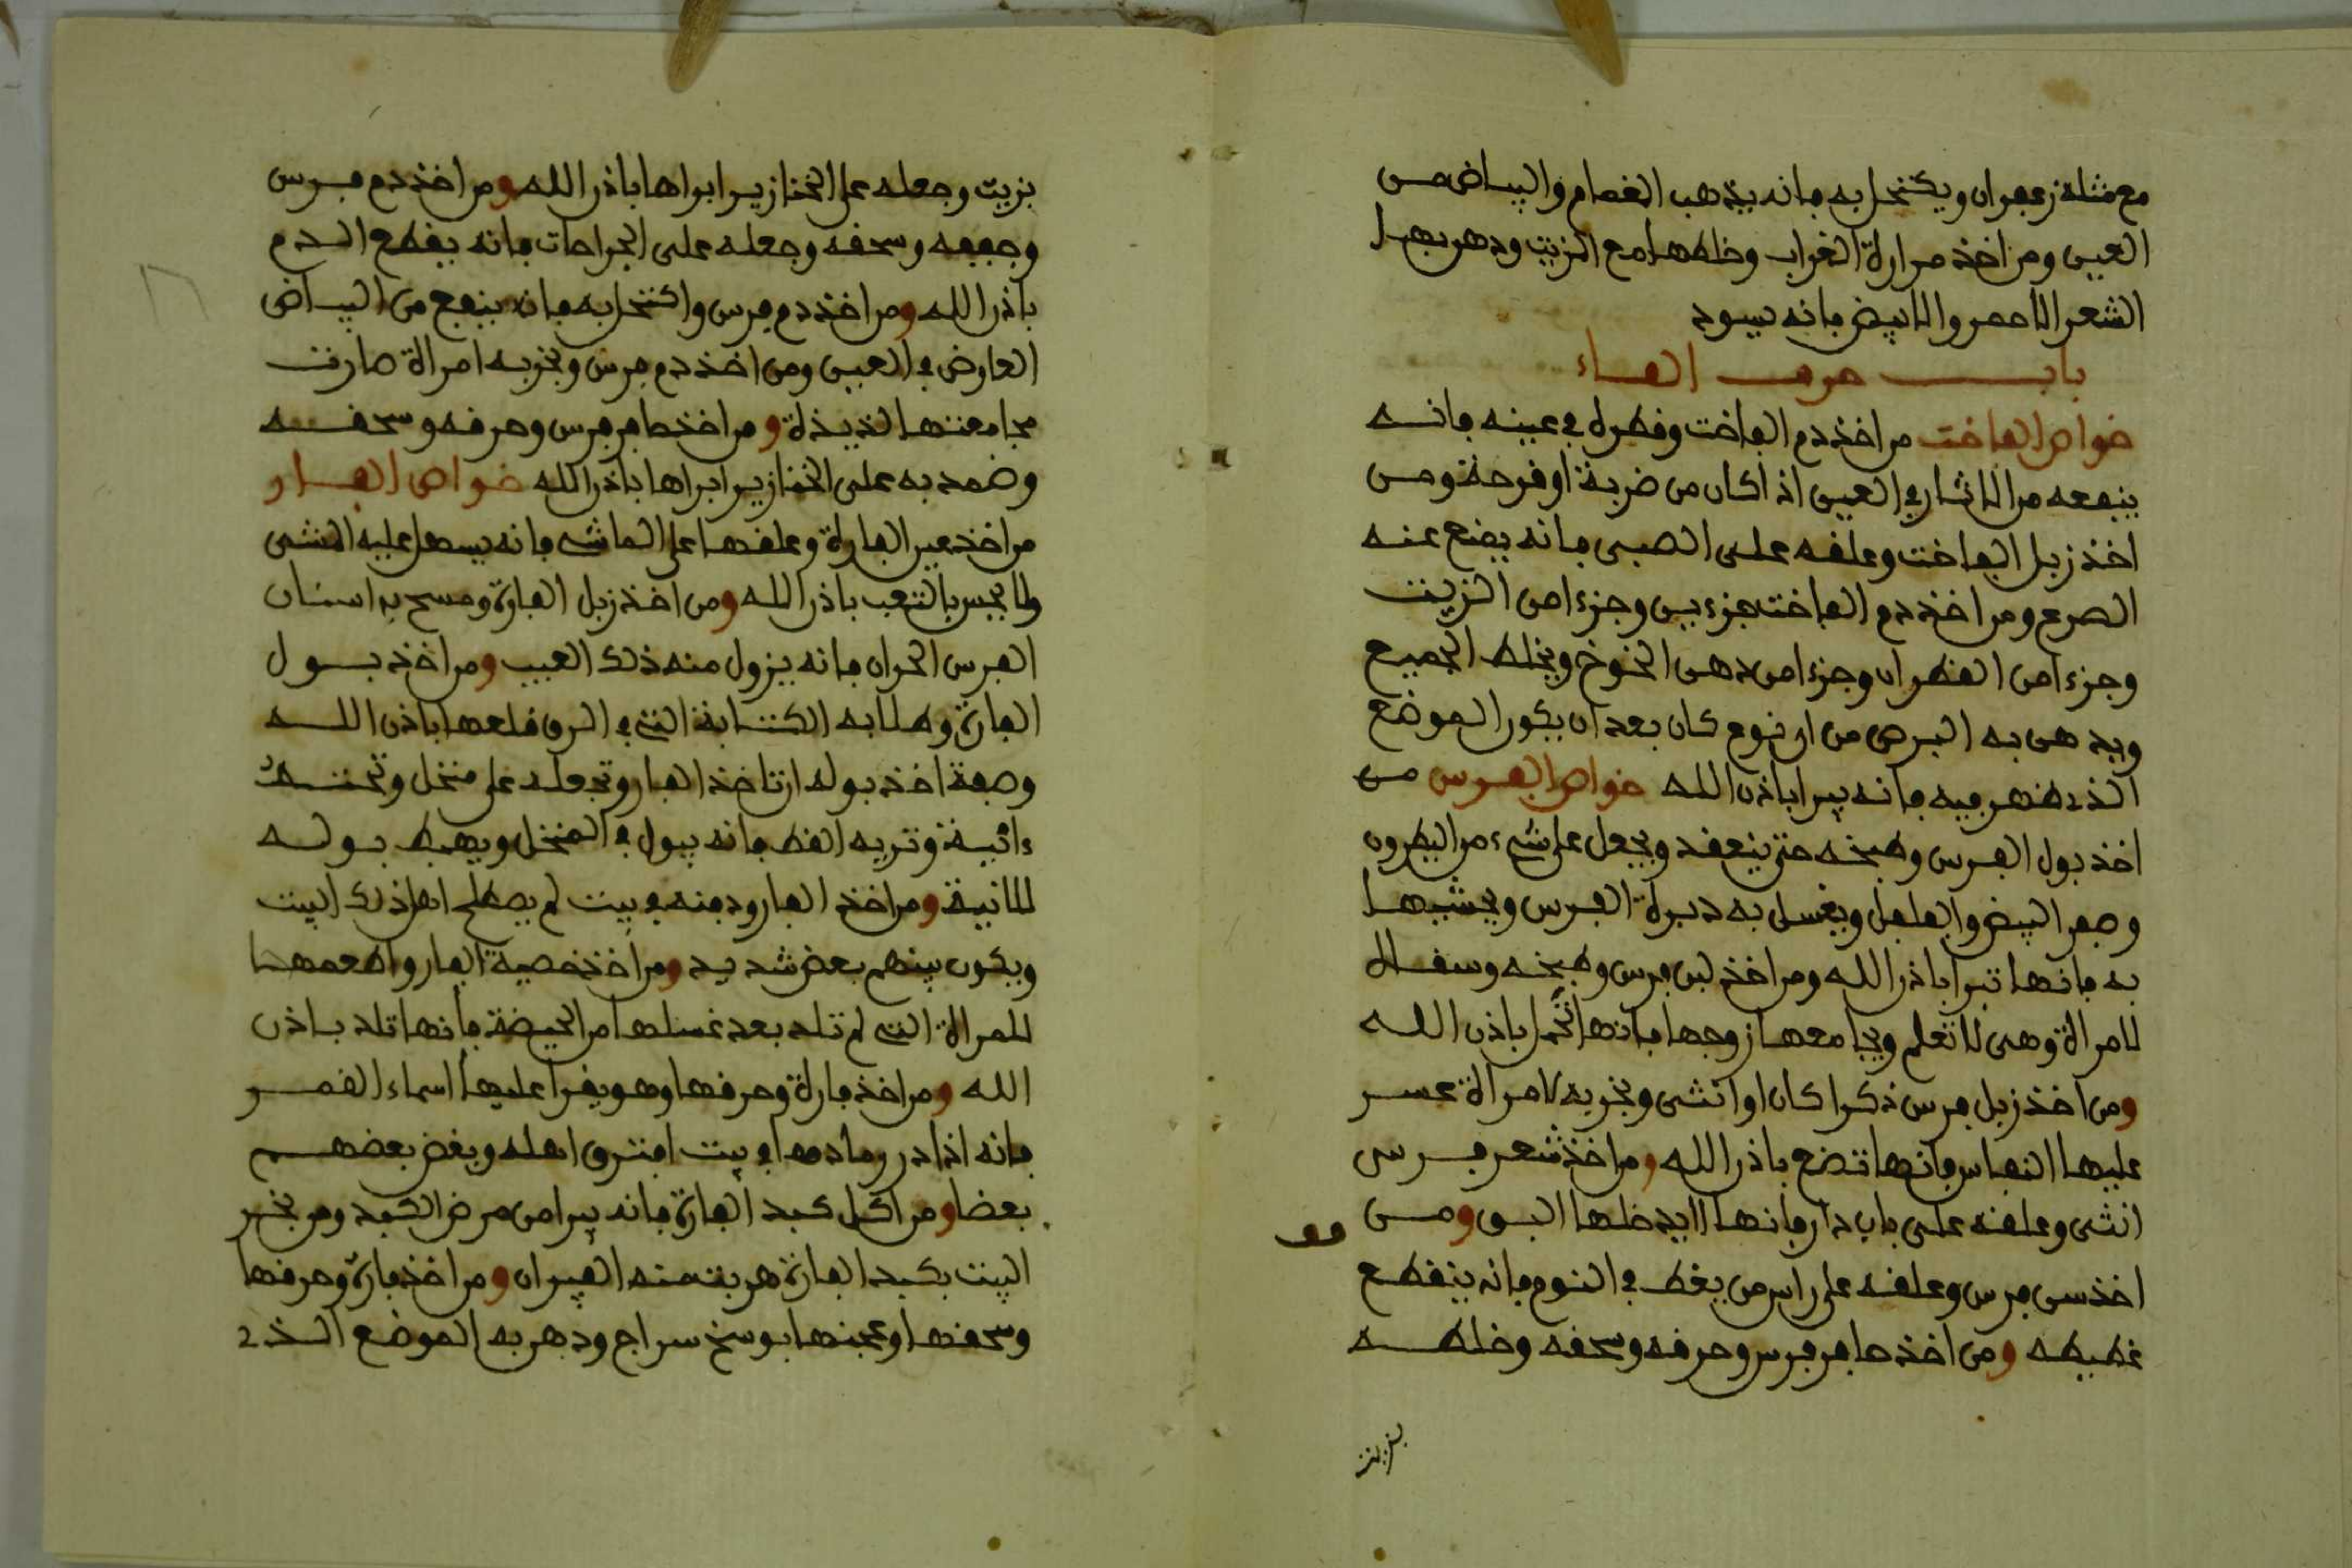 مع مثله زعفران ويكتحل به فانه يذهب الغمام والبياض من
العين ومن اخذ مرارة الغراب وخلطها مع الزيت ودهن بها
الشعر الاحمر والابيض فانه يسود
باب حرف الفاء
خواص الفاخت من اخذ دم الفاخت وقطره في عينه فانه
ينفعه من الاثار في العين اذا كان من ضربة او قرحة ومن
اخذ زبل الفاخت وعلقه على الصبي فانه يضع عنه
الصرع ومن اخذ دم الفاخت جزءين وجزءا من الزيت
وجزءا من القطران وجزءا من دهن الخوخ ويخلط الجميع
ويدهن به البرص من اي نوع كان بعد ان يكون الموضع
الذي ظهر فيه فانه يبرا باذن الله خواص الفرس من
اخذ بول الفرس وطبخه حتى ينعقد ويجعل على شيء من النطرون
وصفر البيض والفلفل ويغسل به دبرة الفرس ويحشيها
به فانها تبرا باذن الله ومن اخذ لبن فرس وطبخه وسقاه
لامراة وهي لا تعلم ويجامعها زوجها فانها تحمل باذن الله
ومن اخذ زبل فرس ذكرا كان او انثى وبخر به لامراة عسر
عليها النفاس فانها تضع باذن الله ومن اخذ شعر فرس
انثى وعلقه على باب دار فانها لا يدخلها البق ومن
اخذ سن فرس وعلقه على راس من يغط في النوم فانه ينقطع
غطيطه ومن اخذ حافر فرس وحرقه وسحقه وخلطه
بزيت
بزيت وجعله على الخنازير ابراها باذن الله ومن اخذ دم فرس
وجففه وسحقه وجعله على الجراحات فانه يقطع الدم
باذن الله ومن اخذ دم فرس واكتحل به فانه ينفع من البياض
العارض في العين ومن اخذ دم فرس وبخر به امراة صارت
مجامعتها لذيذة ومن اخذ حافر فرس وحرقه وسحقه
وضمد به على الخنازير ابراها باذن الله خواص الفار
من اخذ عين الفارة وعلقها على الماشي فانه يسهل عليه المشي
ولا يحس بالتعب باذن الله ومن اخذ زبل الفارة ومسح به اسنان
الفرس الحران فانه يزول منه ذلك العيب ومن اخذ بول
الفارة وطلا به الكتابة التي في الرق قلعها باذن الله
وصفة اخذ بوله ان تاخذ الفار وتجعله على منخل وتحته
ءانية وتريه القط فانه يبول في المنخل ويهبط بوله
للانية ومن اخذ الفار ودفنه في بيت لم يصطلح اهل ذلك البيت
ويكون بينهم بغض شديد ومن اخذ خصية الفار واطعمها
للمراة التي لم تلد بعد غسلها من الحيضة فانها تلد باذن
الله ومن اخذ فارة وحرقها وهو يقرا عليها اسماء القمر
فانه اذا در رمادها في بيت افترق اهله وبغض بعضهم
بعضا ومن اكل كبد الفارة فانه يبرا من مرض الكبد ومن بخر
البيت بكبد الفارة هربت منه الفيران ومن اخذ فارة وحرقها
وسحقها وعجنها بوسخ سراج ودهن به الموضع الذي